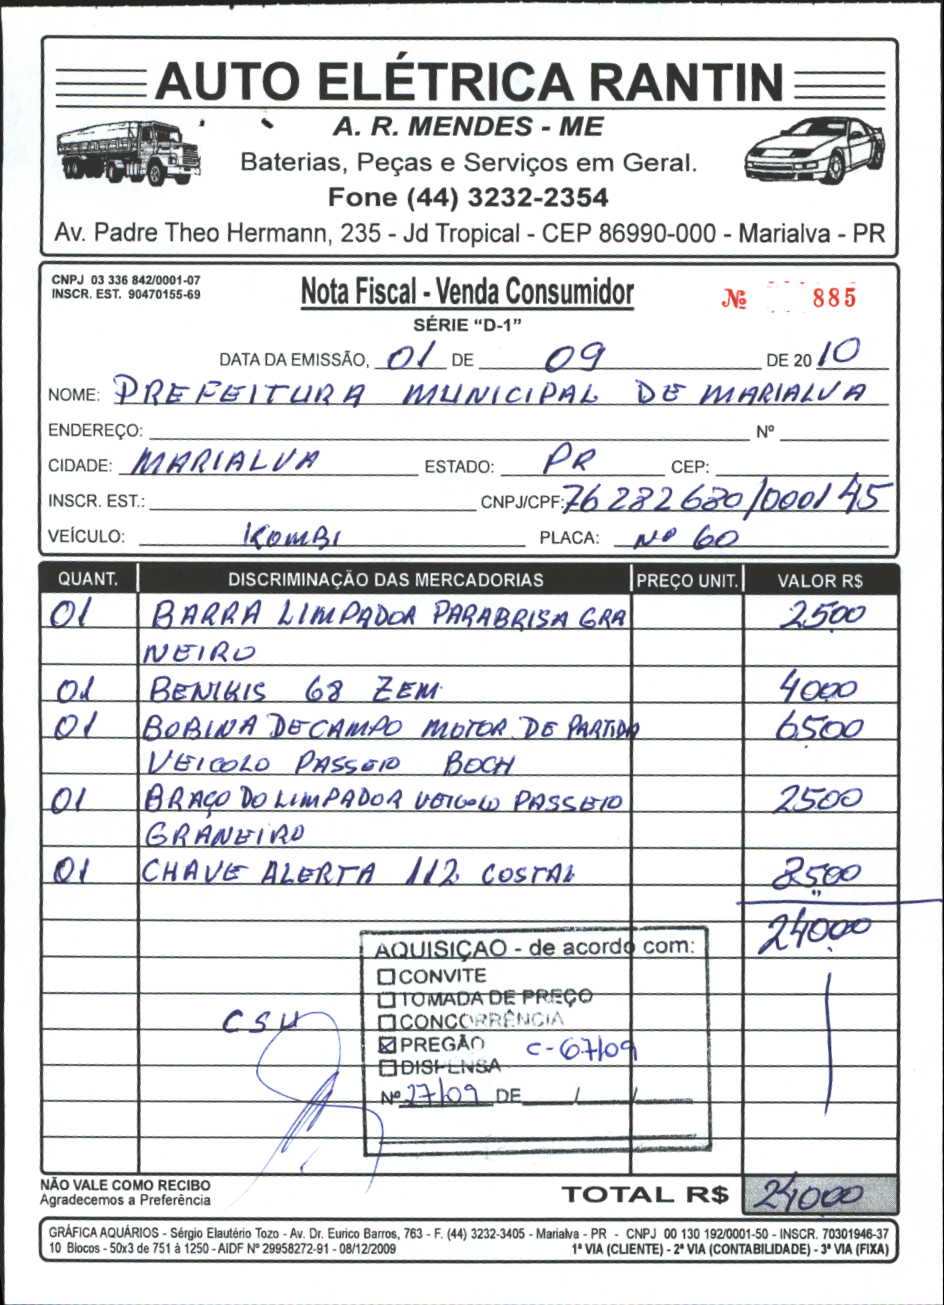 AUTO ELÉTRICA RANTIN
A. R. MENDES - ME
Baterias, Peças e Serviços em Geral.
Fone (44) 3232-2354
Av. Padre Theo Hermann, 235 - Jd Tropical - CEP 86990-000 - Marialva - PR
CNPJ 03 336 842/0001-07
INSCR. EST. 90470155-69
Nota Fiscal - Venda Consumidor
Nº 885
SÉRIE "D-1"
DATA DA EMISSÃO, 01 DE 09 DE 2010
NOME: PREFEITURA MUNICIPAL DE MARIALVA
ENDEREÇO: Nº
CIDADE: MARIALVA ESTADO: PR CEP:
INSCR. EST.: CNPJ/CPF: 76282680/0001 45
VEÍCULO: KOMBI PLACA: Nº 60
QUANT. DISCRIMINAÇÃO DAS MERCADORIAS PREÇO UNIT. VALOR R$
01 BARRA LIMPADOR PARABRISA GRA 2500
NEIRO
01 68 ZEM 4000
01 BOBINA DE CAMPO MOTOR DE PARTIDA 6500
VEICOLO PASSEIO BOCH
01 BRAÇO DO LIMPADOR VEICOLO PASSEIO 2500
GRANEIRO
01 CHAVE ALERTA 112 COSTAL 8500
24000
AQUISIÇÃO - de acordo com:
CONVITE
TOMADA DE PREÇO
CONCORRÊNCIA
CSU
PREGÃO C-67/09
DISPENSA
Nº 27/09 DE / /
NÃO VALE COMO RECIBO
Agradecemos a Preferência
TOTAL R$ 24000
GRÁFICA AQUÁRIOS - Sérgio Elautério Tozo - Av. Dr. Eurico Barros, 763 - F. (44) 3232-3405 - Marialva - PR - CNPJ 00 130 192/0001-50 - INSCR. 70301946-37
10 Blocos - 50x3 de 751 à 1250 - AIDF Nº 29958272-91 - 08/12/2009 1ª VIA (CLIENTE) - 2ª VIA (CONTABILIDADE) - 3ª VIA (FIXA)